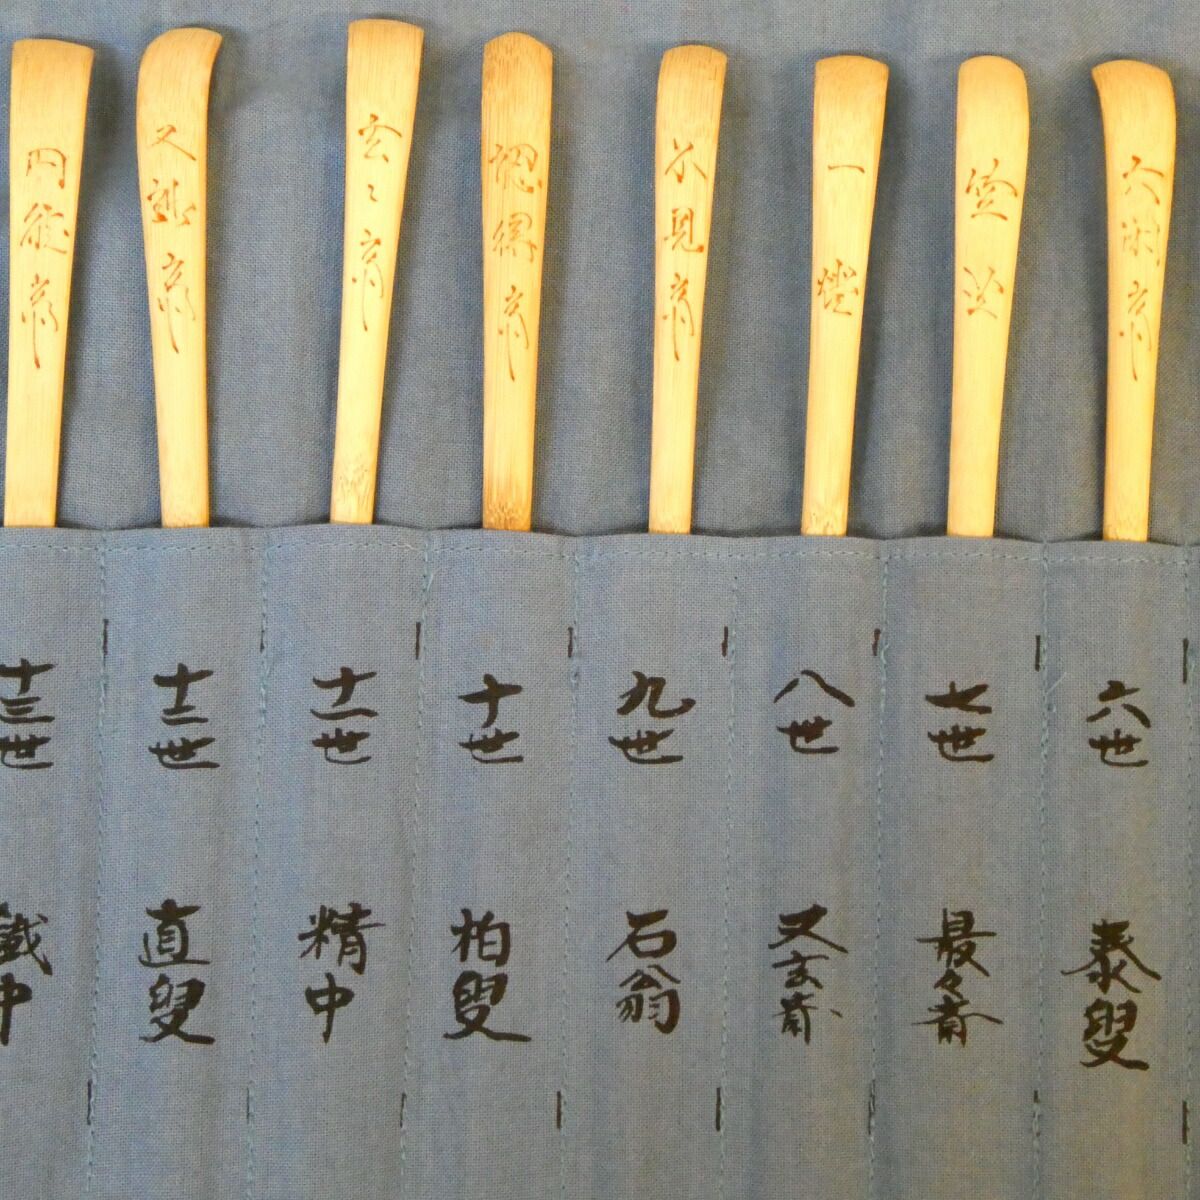 六閑斎
六世
泰叟
竺叟
七世
最々斎
一燈
八世
又玄斎
不見斎
九世
石翁
認得斎
十世
柏叟
玄々斎
十一世
精中
又玅斎
十二世
直叟
円能斎
十三世
鐵中